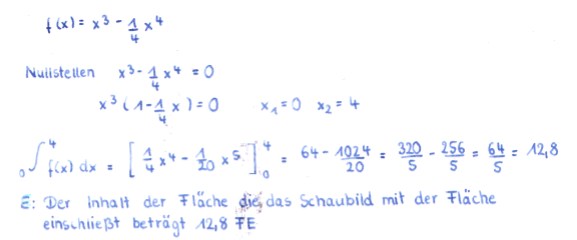 f(x) = x³ - 1/4 x⁴
Nullstellen x³ - 1/4 x⁴ = 0
x³ (1 - 1/4 x) = 0 x₁ = 0 x₂ = 4
₀∫⁴ f(x) dx = [1/4 x⁴ - 1/20 x⁵]₀⁴ = 64 - 1024/20 = 320/5 - 256/5 = 64/5 = 12,8
E: Der Inhalt der Fläche die das Schaubild mit der Fläche
einschließt beträgt 12,8 FE